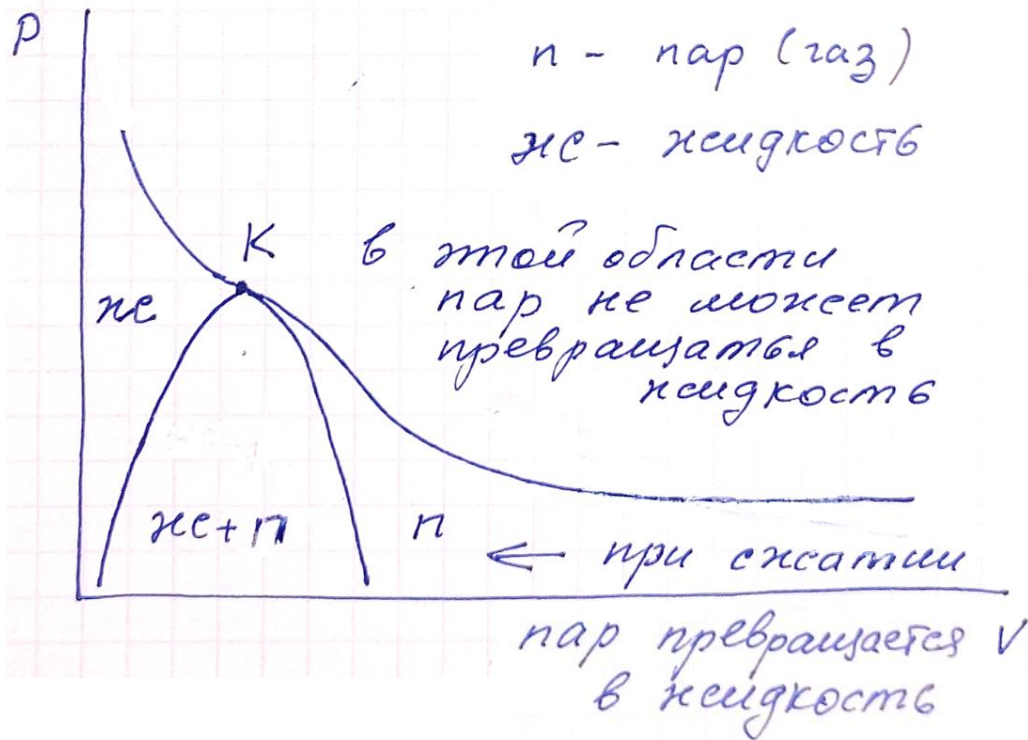 P
п - пар (газ)
ж - жидкость
К
в этой области
пар не может
превращаться в
жидкость
ж
ж+п
п
← при сжатии
пар превращается
в жидкость
V